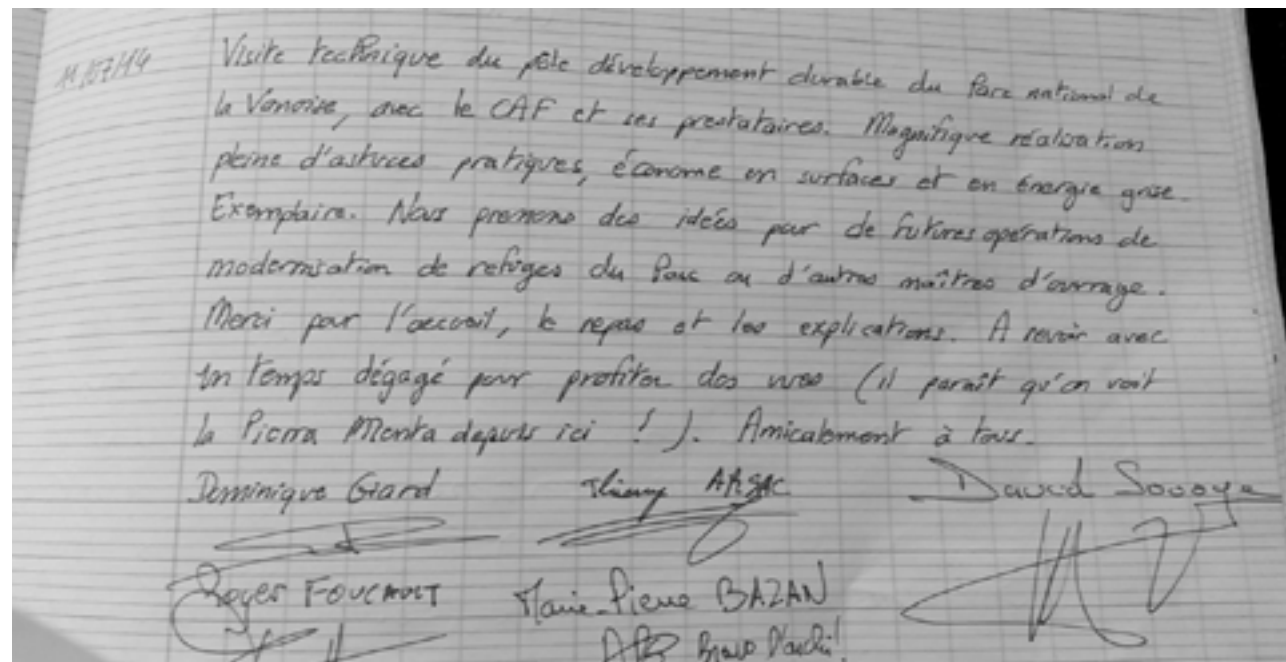 11/07/14
Visite technique du pôle développement durable du Parc national de
la Vanoise, avec le CAF et ses prestataires. Magnifique réalisation
pleine d'astuces pratiques, économe en surfaces et en énergie grise.
Exemplaire. Nous prenons des idées pour de futures opérations de
modernisation de refuges du Parc ou d'autres maîtres d'ouvrage.
Merci pour l'accueil, le repas et les explications. A revoir avec
un temps dégagé pour profiter des vues (il paraît qu'on voit
la Pierra Menta depuis ici !). Amicalement à tous.
Dominique Giard Thierry ARSAC David
Roger FOUCAULT Marie-Pierre BAZAN
Bravo